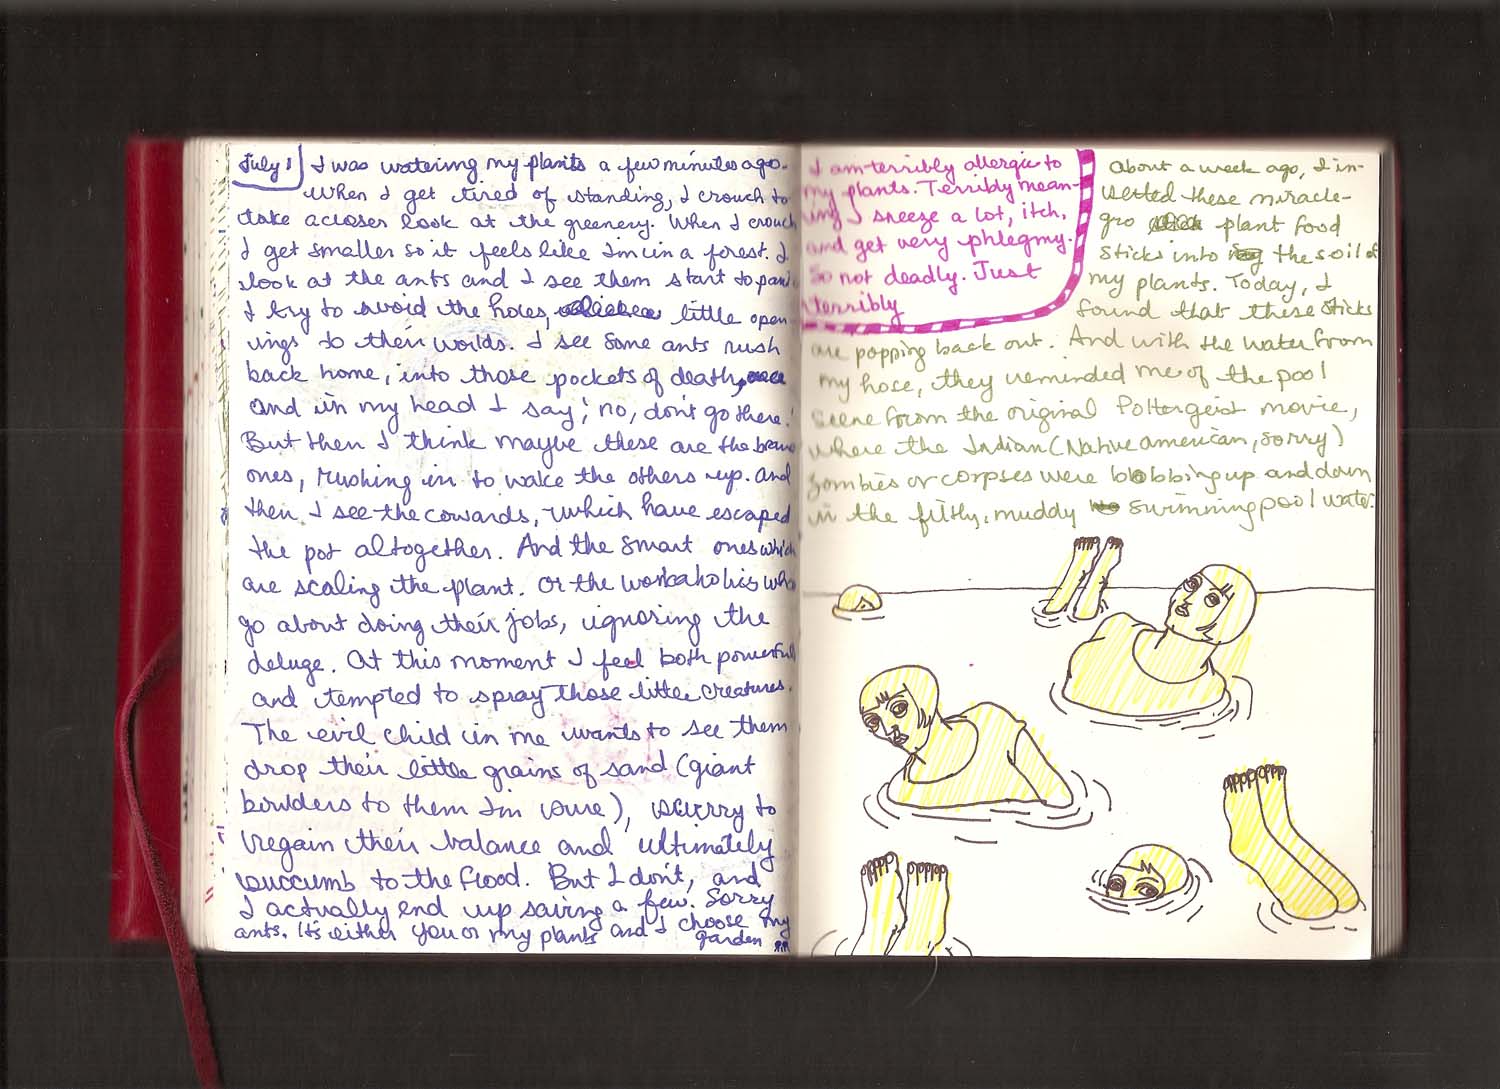 July 1
I was watering my plants a few minutes ago.
When I get tired of standing, I crouch to
take a closer look at the greenery. When I crouch
I get smaller so it feels like I'm in a forest. I
look at the ants and I see them start to panic
I try to avoid the holes, little open-
ings to their worlds. I see some ants rush
back home, into those pockets of death,
and in my head I say, 'no, don't go there!'
But then I think maybe these are the brave
ones, rushing in to wake the others up. And
then I see the cowards, which have escaped
the pot altogether. And the smart ones which
are scaling the plant. Or the workaholics who
go about doing their jobs, ignoring the
deluge. At this moment I feel both powerful
and tempted to spray those little creatures.
The evil child in me wants to see them
drop their little grains of sand (giant
boulders to them I'm sure), scurry to
regain their balance and ultimately
succumb to the flood. But I don't, and
I actually end up saving a few. Sorry
ants. It's either you or my plants and I choose my
garden
I am terribly allergic to
my plants. Terribly mean-
ing I sneeze a lot, itch,
and get very phlegmy.
So not deadly. Just
terribly
About a week ago, I in-
serted these miracle-
gro plant food
sticks into the soil of
my plants. Today, I
found that these sticks
are popping back out. And with the water from
my hose, they reminded me of the pool
scene from the original Poltergeist movie,
where the Indian (Native american, sorry)
zombies or corpses were bobbing up and down
in the filthy, muddy swimming pool water.